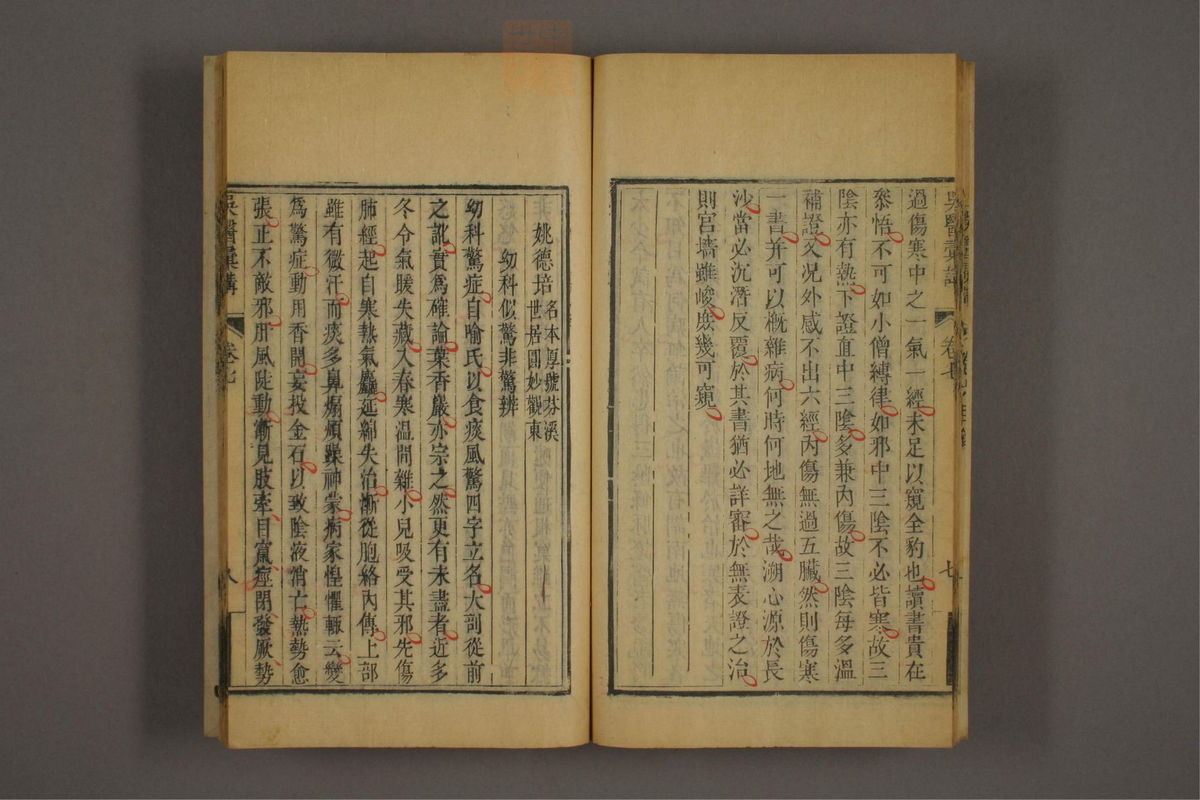 過傷寒中之一氣一經未足以窺全豹也讀書貴在
叅悟不可如小僧縛律如邪中三陰不必皆寒故三
陰亦有熱下證直中三陰多兼內傷故三陰每多溫
補證又况外感不出六經內傷無過五臟然則傷寒
一書并可以概雜病何時何地無之哉溯心源於長
沙當必沉潛反覆於其書猶必詳審於無表證之治
則宮墻雖峻庶幾可窺
姚德培
名本厚號芬溪
世居圓妙觀東
幼科似驚非驚辨
幼科驚症自喻氏以食痰風驚四字立名大剖從前
之訛實爲確論葉香巖亦宗之然更有未盡者近多
冬令氣暖失藏入春寒温間雜小兒吸受其邪先傷
肺經起自寒熱氣麤延綿失治漸從胞絡內傳上部
雖有微汗而痰多鼻煽煩躁神蒙病家惶懼輙云變
爲驚症動用香開妄投金石以致陰液消亡熱勢愈
張正不敵邪肝風陡動漸見肢牽目竄痙閉發厥勢
吳醫彙講
卷七
八